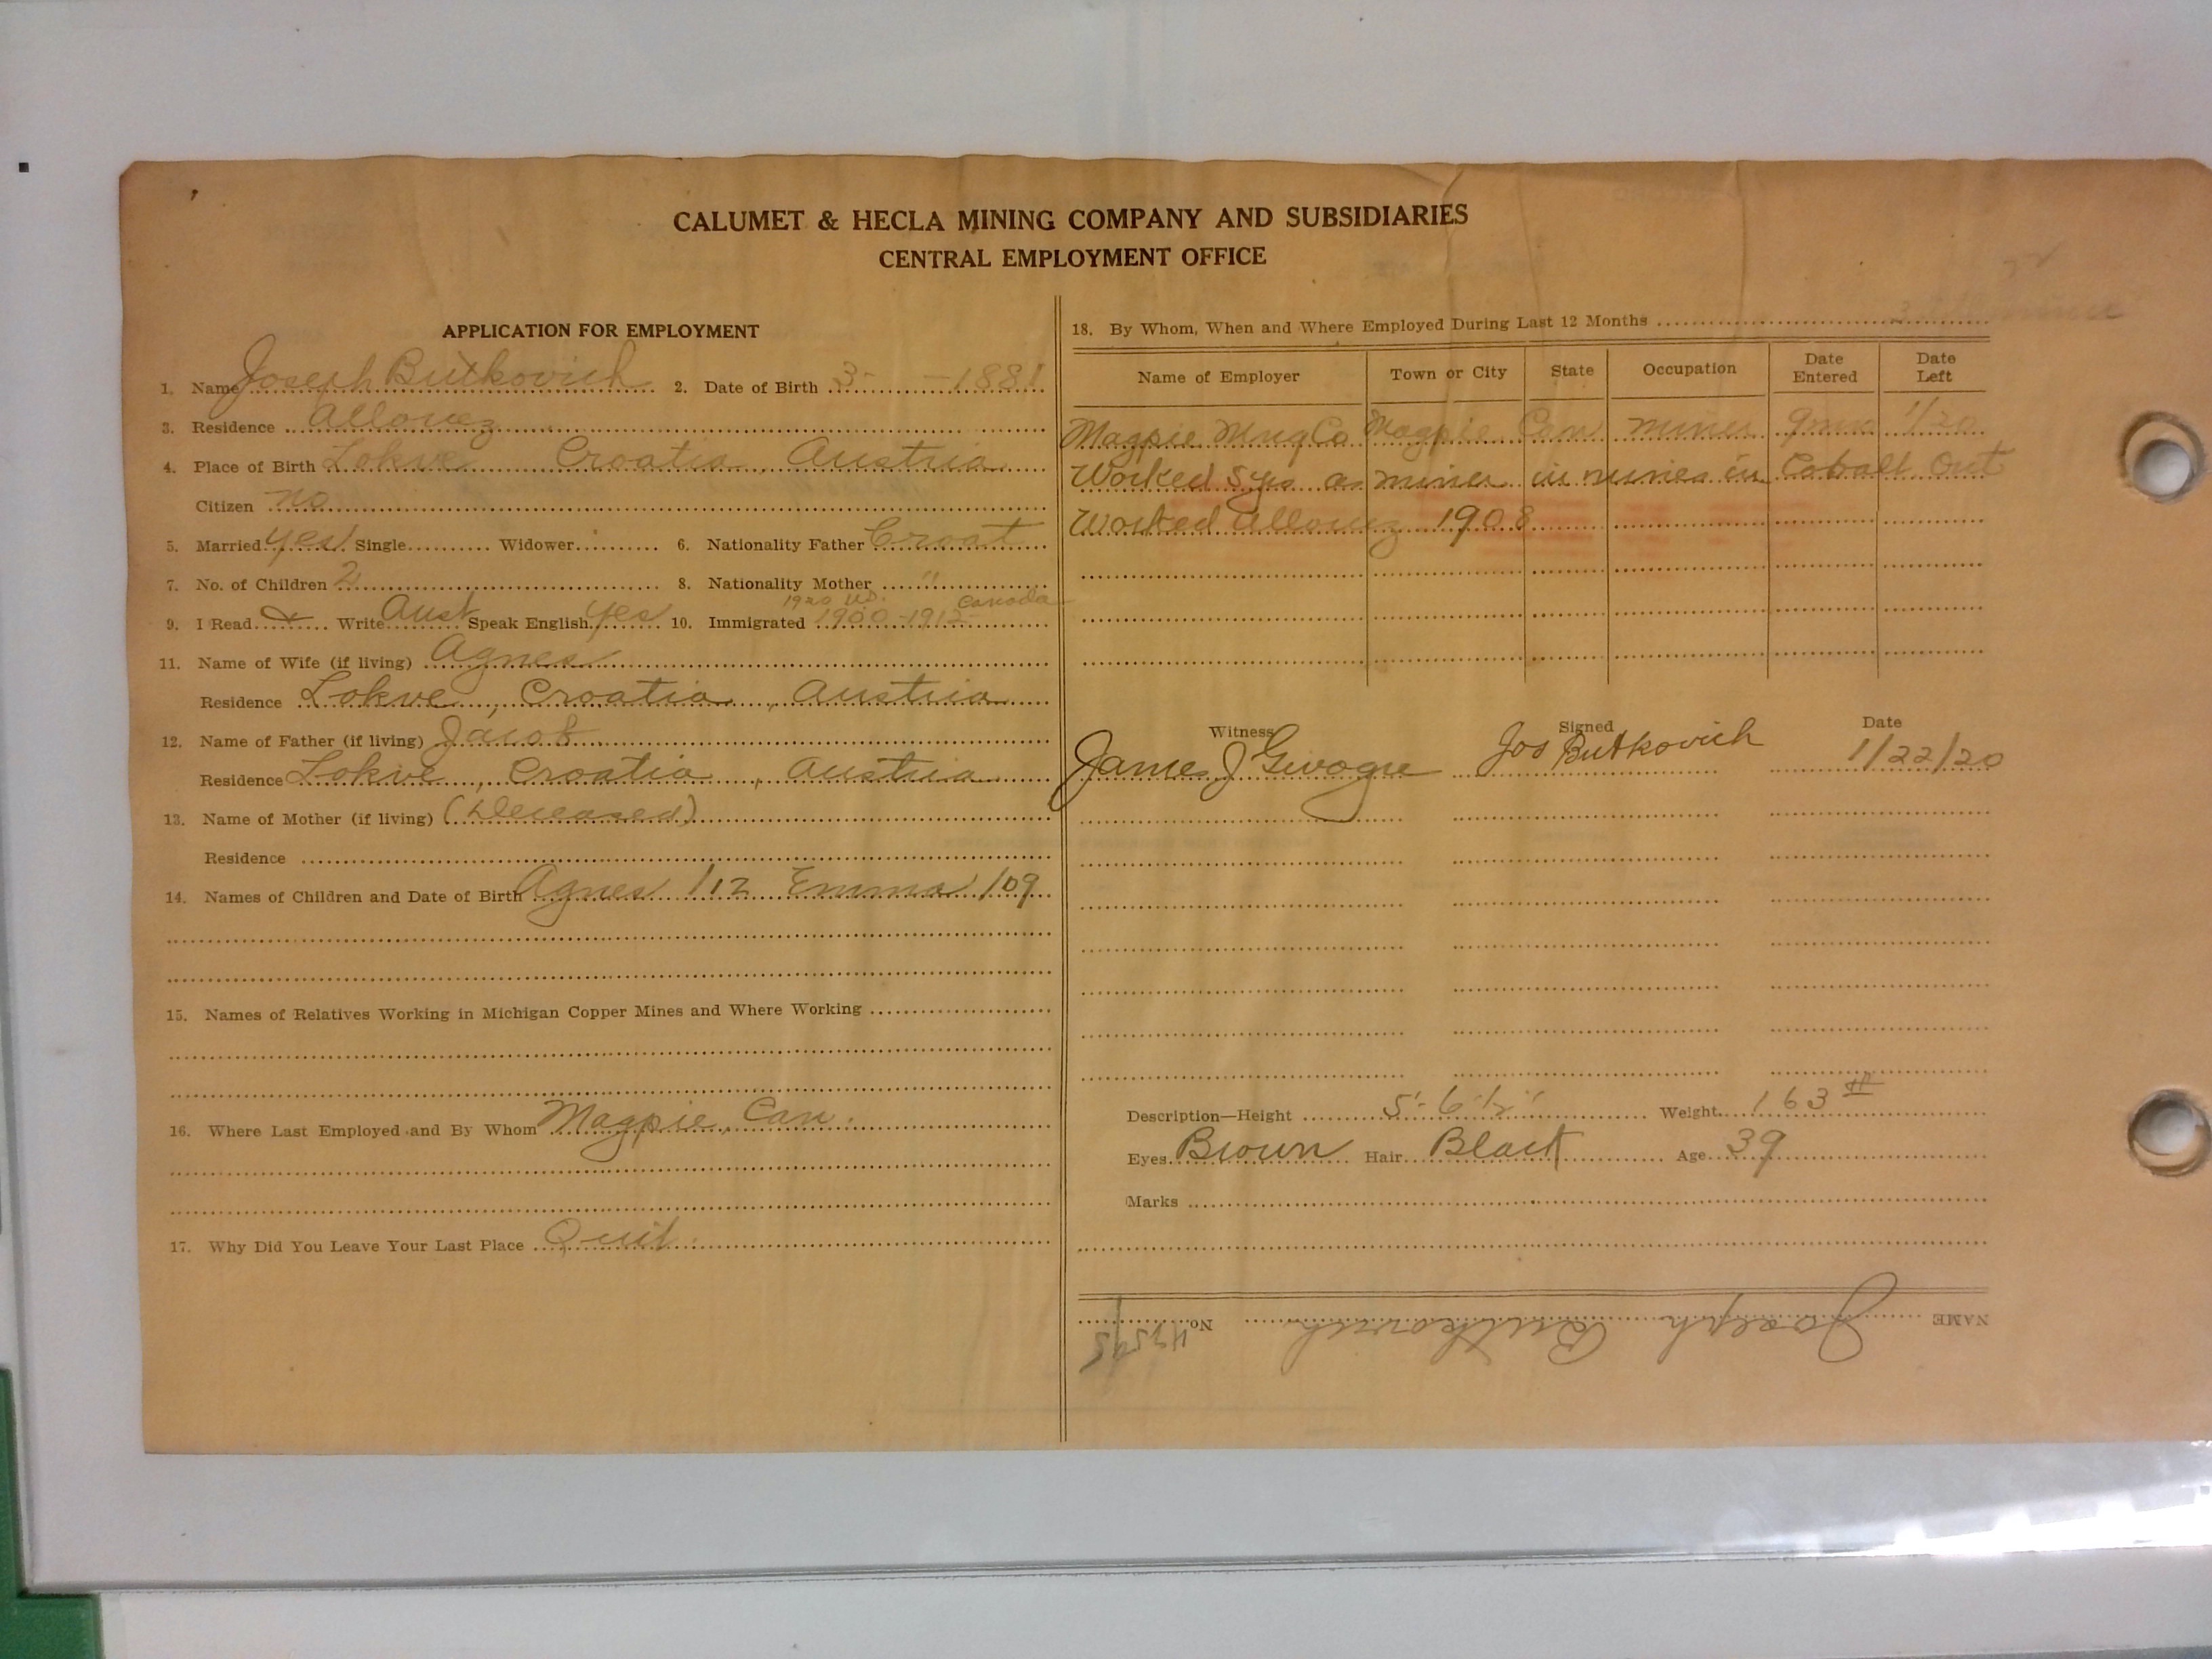 CALUMET & HECLA MINING COMPANY AND SUBSIDIARIES
CENTRAL EMPLOYMENT OFFICE
APPLICATION FOR EMPLOYMENT
1. Name Joseph Butkovich 2. Date of Birth 3- -1881
3. Residence Allouez
4. Place of Birth Lokve Croatia Austria
Citizen no
5. Married yes Single Widower 6. Nationality Father Croat
7. No. of Children 2 8. Nationality Mother "
1920 U.S. Canada
9. I Read & Write Aust Speak English yes 10. Immigrated 1900-1912
11. Name of Wife (if living) Agnes
Residence Lokve, Croatia, Austria
12. Name of Father (if living) Jacob
Residence Lokve, Croatia, Austria
13. Name of Mother (if living) (Deceased)
Residence
14. Names of Children and Date of Birth Agnes /12 Emma /09
15. Names of Relatives Working in Michigan Copper Mines and Where Working
16. Where Last Employed and By Whom Magpie, Can.
17. Why Did You Leave Your Last Place Quit.
18. By Whom, When and Where Employed During Last 12 Months
Name of Employer Town or City State Occupation Date Entered Date Left
Magpie Mng Co Magpie Can miner 9mn 1/20
Worked 5 yrs as miner in mines in Cobalt Ont
Worked Allouez 1908
Witness Signed Date
James J Jos Butkovich 1/22/20
Description—Height 5'-6 1/2" Weight 163 #
Eyes Brown Hair Black Age 39
Marks
NAME Joseph Butkovich No.